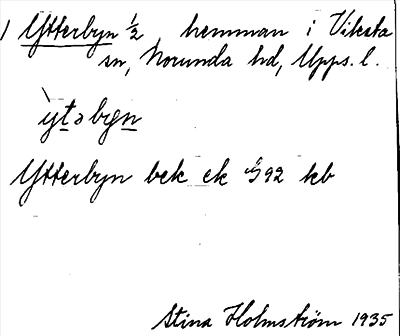 1 Ytterbyn 1/2 hemman i Viksta
sn, Norunda hd, Upps. l.
ỳtəbyn
Ytterbyn bek ek 92 kb
Stina Holmström 1935